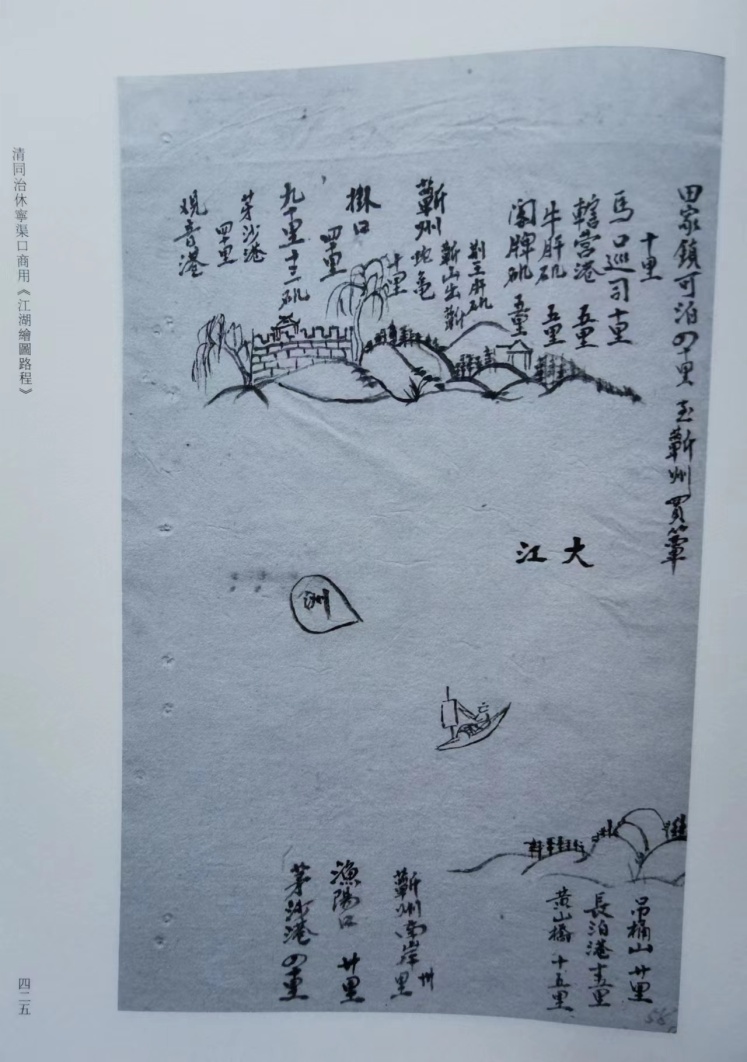 田家鎮可泊四十里至蘄州買簟
十里
馬口巡司十里
轄营港五里
牛肝矶五里
闍牌矶五里
荆王府矶
蘄山出蘄
蘄州地龟
十里
掛口
四十里
九十里十三矶
茅沙港
四十里
观音港
大江
洲
吊桶山廿里
長泊港十五里
黄山橋十五里
蘄州南岸卅里
漁陽口廿里
茅沙港四十里
56
清同治休寧渠口商用《江湖繪圖路程》
四二五